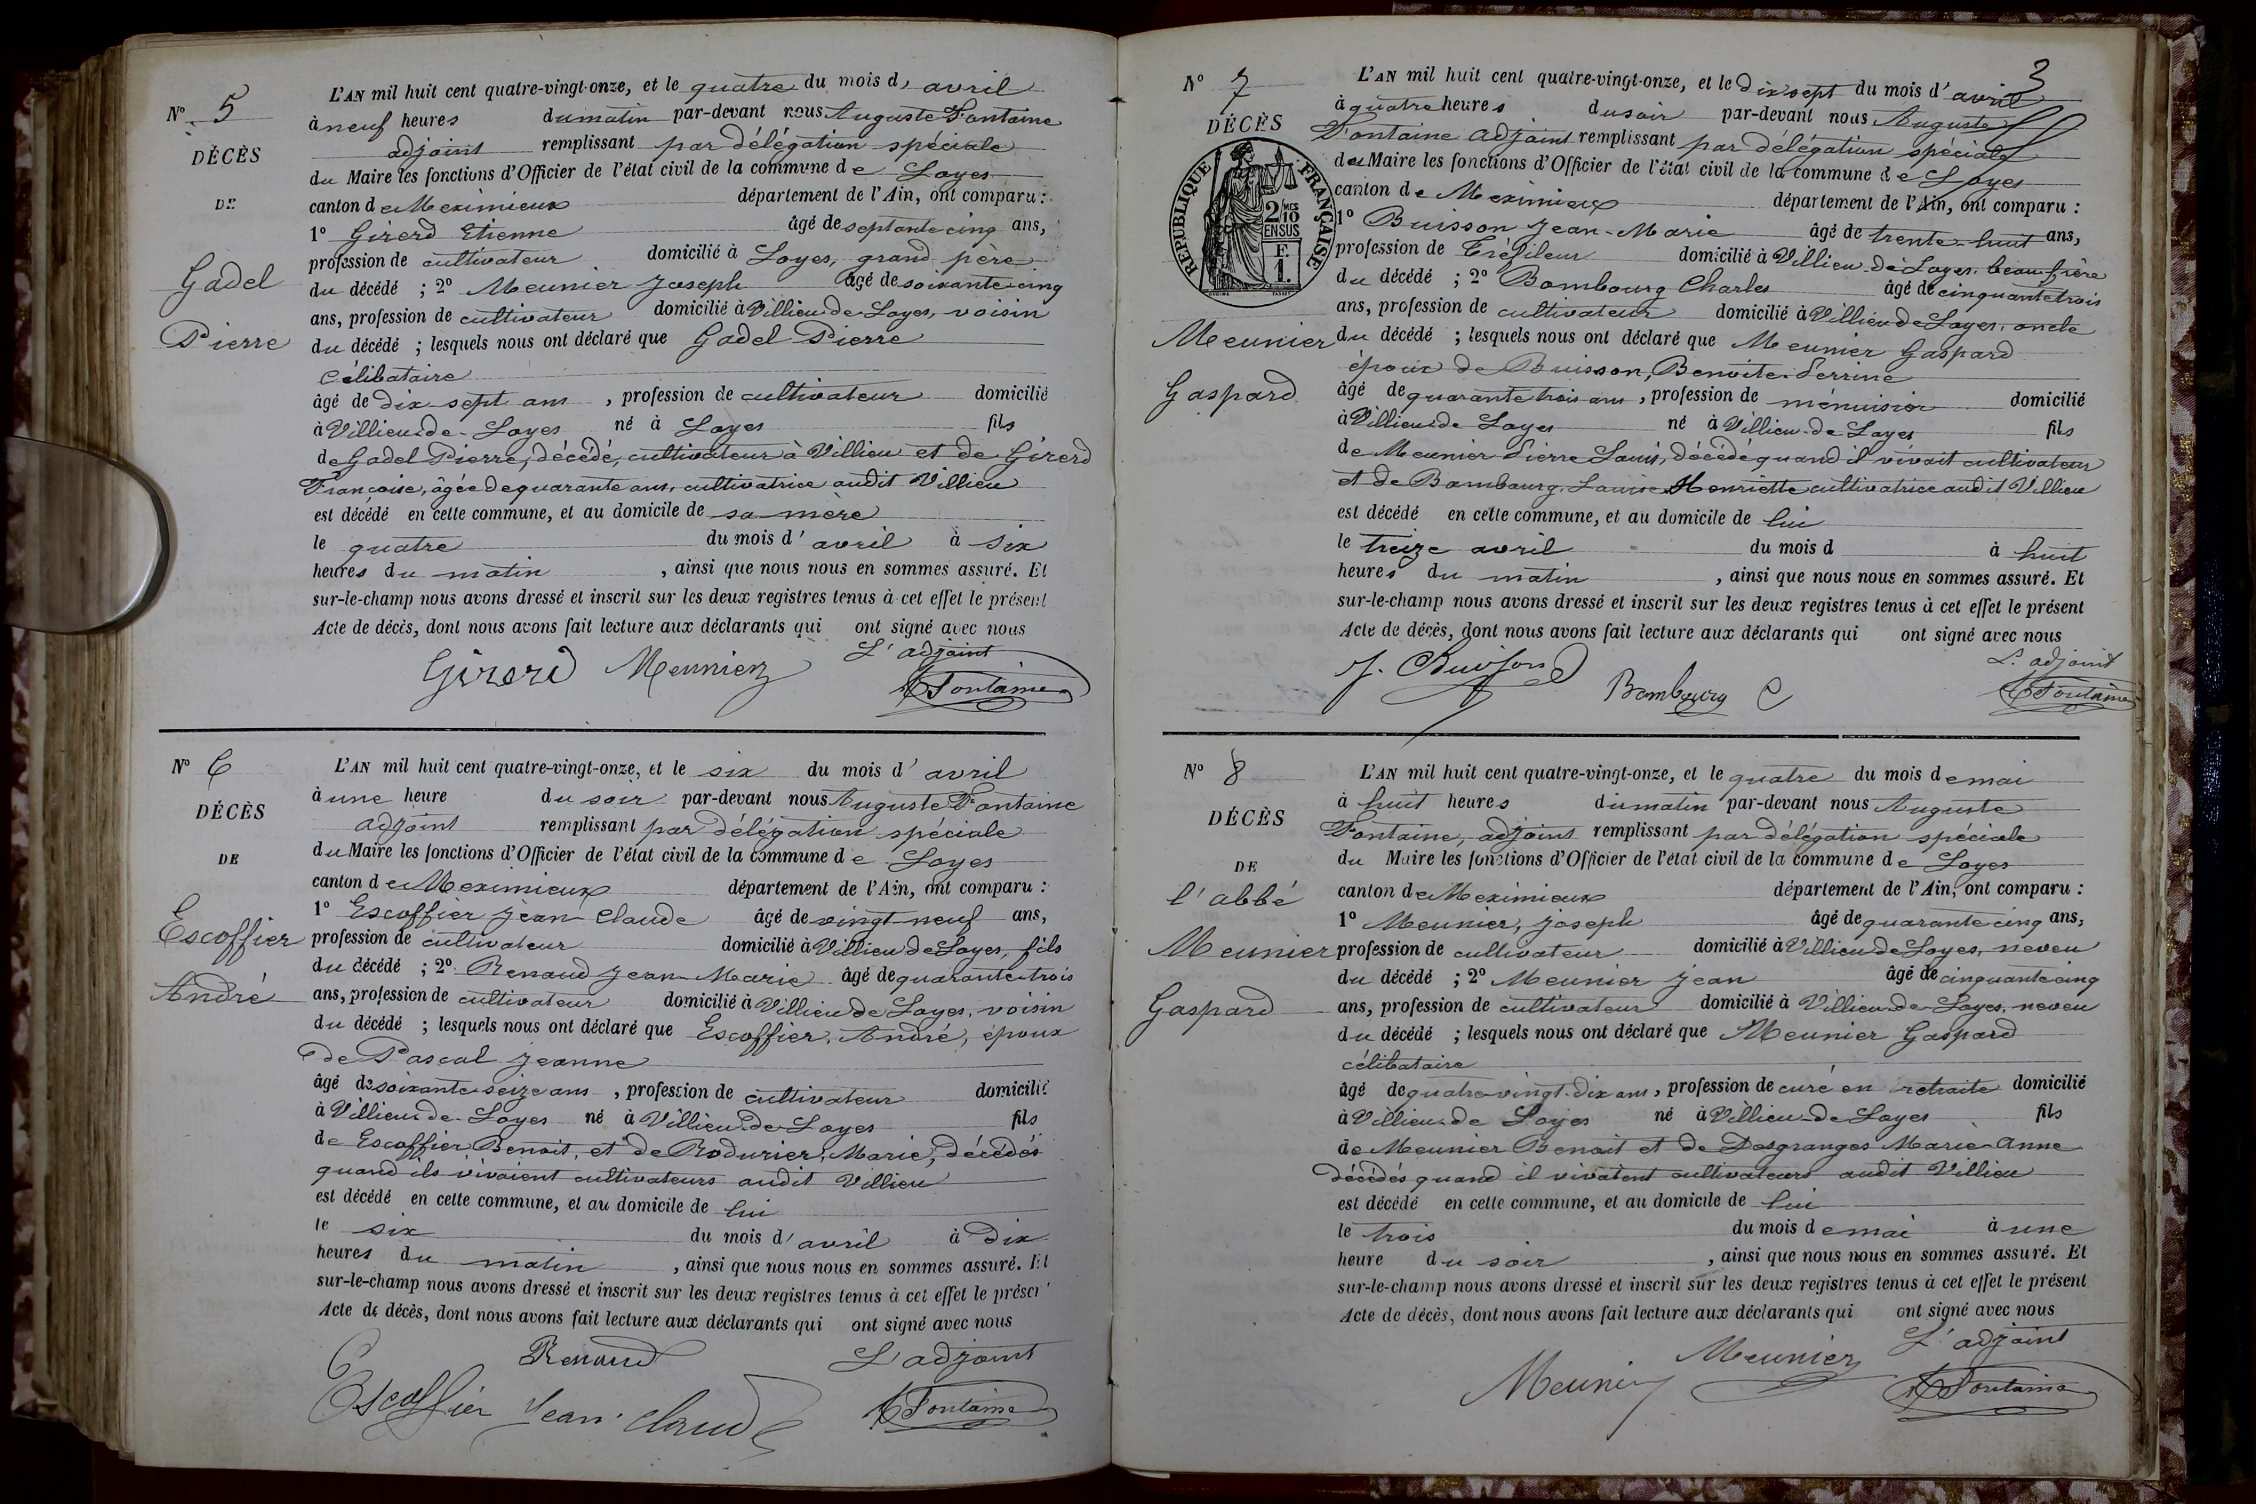 N° 5
DÉCÈS
DE
Gadel
Pierre
L'AN mil huit cent quatre-vingt-onze, et le quatre du mois d' avril
à neuf heures du matin par-devant nous Auguste Fontaine
adjoint remplissant par délégation spéciale
du Maire les fonctions d'Officier de l'état civil de la commune de Loyes
canton de Meximieux département de l'Ain, ont comparu :
1° Girerd Etienne âgé de septante cinq ans,
profession de cultivateur domicilié à Loyes, grand père
du décédé ; 2° Meunier Joseph âgé de soixante cinq
ans, profession de cultivateur domicilié à Villieu de Loyes, voisin
du décédé ; lesquels nous ont déclaré que Gadel Pierre
célibataire
âgé de dix sept ans , profession de cultivateur domicilié
à Villieu-de-Loyes né à Loyes fils
de Gadel Pierre, décédé, cultivateur à Villieu et de Girerd
Françoise, âgée de quarante ans, cultivatrice audit Villieu
est décédé en cette commune, et au domicile de sa mère
le quatre du mois d' avril à six
heures du matin , ainsi que nous nous en sommes assuré. Et
sur-le-champ nous avons dressé et inscrit sur les deux registres tenus à cet effet le présent
Acte de décès, dont nous avons fait lecture aux déclarants qui ont signé avec nous
L'adjoint
Girerd Meunier
A Fontaine
N° 6
DÉCÈS
DE
Escoffier
André
L'AN mil huit cent quatre-vingt-onze, et le six du mois d' avril
à une heure du soir par-devant nous Auguste Fontaine
adjoint remplissant par délégation spéciale
du Maire les fonctions d'Officier de l'état civil de la commune de Loyes
canton de Meximieux département de l'Ain, ont comparu :
1° Escoffier Jean Claude âgé de vingt neuf ans,
profession de cultivateur domicilié à Villieu de Loyes, fils
du décédé ; 2° Renaud Jean-Marie âgé de quarante trois
ans, profession de cultivateur domicilié à Villieu de Loyes, voisin
du décédé ; lesquels nous ont déclaré que Escoffier, André, époux
de Pascal Jeanne
âgé de soixante seize ans , profession de cultivateur domicilié
à Villieu-de-Loyes né à Villieu-de-Loyes fils
de Escoffier Benoit, et de Rodurier, Marie, décédés
quand ils vivaient cultivateurs audit Villieu
est décédé en cette commune, et au domicile de lui
le six du mois d' avril à Dix
heures du matin , ainsi que nous nous en sommes assuré. Et
sur-le-champ nous avons dressé et inscrit sur les deux registres tenus à cet effet le présen
Acte de décès, dont nous avons fait lecture aux déclarants qui ont signé avec nous
Renaud L'adjoint
Escoffier Jean Claude A Fontaine
3
N° 7
DÉCÈS
RÉPUBLIQUE FRANÇAISE
2 MES
10
EN SUS
F.
1.
Meunier
Gaspard
L'AN mil huit cent quatre-vingt-onze, et le Dix sept du mois d' avril
à quatre heures du soir par-devant nous Auguste
Fontaine adjoint remplissant par délégation spéciale
du Maire les fonctions d'Officier de l'état civil de la commune de Loyes
canton de Meximieux département de l'Ain, ont comparu :
1° Buisson Jean-Marie âgé de trente-huit ans,
profession de Tréfileur domicilié à Villieu-de-Loyes, beau frère
du décédé ; 2° Bombourg Charles âgé de cinquante trois
ans, profession de cultivateur domicilié à Villieu de Loyes, oncle
du décédé ; lesquels nous ont déclaré que Meunier Gaspard
époux de Buisson, Benoite Perrine
âgé de quarante trois ans , profession de ménuisier domicilié
à Villieu de Loyes né à Villieu-de-Loyes fils
de Meunier Pierre Louis, décédé quand il vivait cultivateur
et de Bombourg, Louise Henriette cultivatrice audit Villieu
est décédé en cette commune, et au domicile de lui
le treize avril du mois d à huit
heures du matin , ainsi que nous nous en sommes assuré. Et
sur-le-champ nous avons dressé et inscrit sur les deux registres tenus à cet effet le présent
Acte de décès, dont nous avons fait lecture aux déclarants qui ont signé avec nous
L'adjoint
J. Buisson Bombourg C A Fontaine
N° 8
DÉCÈS
DE
l'abbé
Meunier
Gaspard
L'AN mil huit cent quatre-vingt-onze, et le quatre du mois de mai
à huit heures du matin par-devant nous Auguste
Fontaine, adjoint remplissant par délégation spéciale
du Maire les fonctions d'Officier de l'état civil de la commune de Loyes
canton de Meximieux département de l'Ain, ont comparu :
1° Meunier, Joseph âgé de quarante cinq ans,
profession de cultivateur domicilié à Villieu de Loyes, neveu
du décédé ; 2° Meunier Jean âgé de cinquante cinq
ans, profession de cultivateur domicilié à Villieu-de-Loyes, neveu
du décédé ; lesquels nous ont déclaré que Meunier Gaspard
célibataire
âgé de quatre-vingt-dix ans , profession de curé en retraite domicilié
à Villieu-de Loyes né à Villieu-de-Loyes fils
de Meunier Benoit et de Desgranges Marie-Anne
décédés quand il vivaient cultivateurs audit Villieu
est décédé en cette commune, et au domicile de lui
le trois du mois de mai à une
heure du soir , ainsi que nous nous en sommes assuré. Et
sur-le-champ nous avons dressé et inscrit sur les deux registres tenus à cet effet le présent
Acte de décès, dont nous avons fait lecture aux déclarants qui ont signé avec nous
L'adjoint
Meunier Meunier A Fontaine